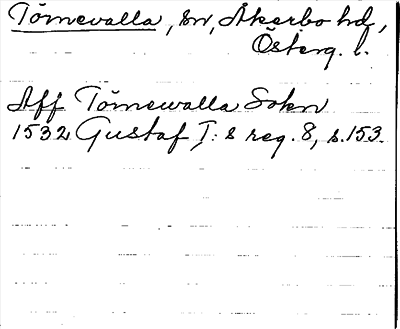 Törnevalla, sn, Åkerbo hd,
Österg. l.
Aff Törnewalla Sokn
1532 Gustaf I:s reg. 8, s. 153.